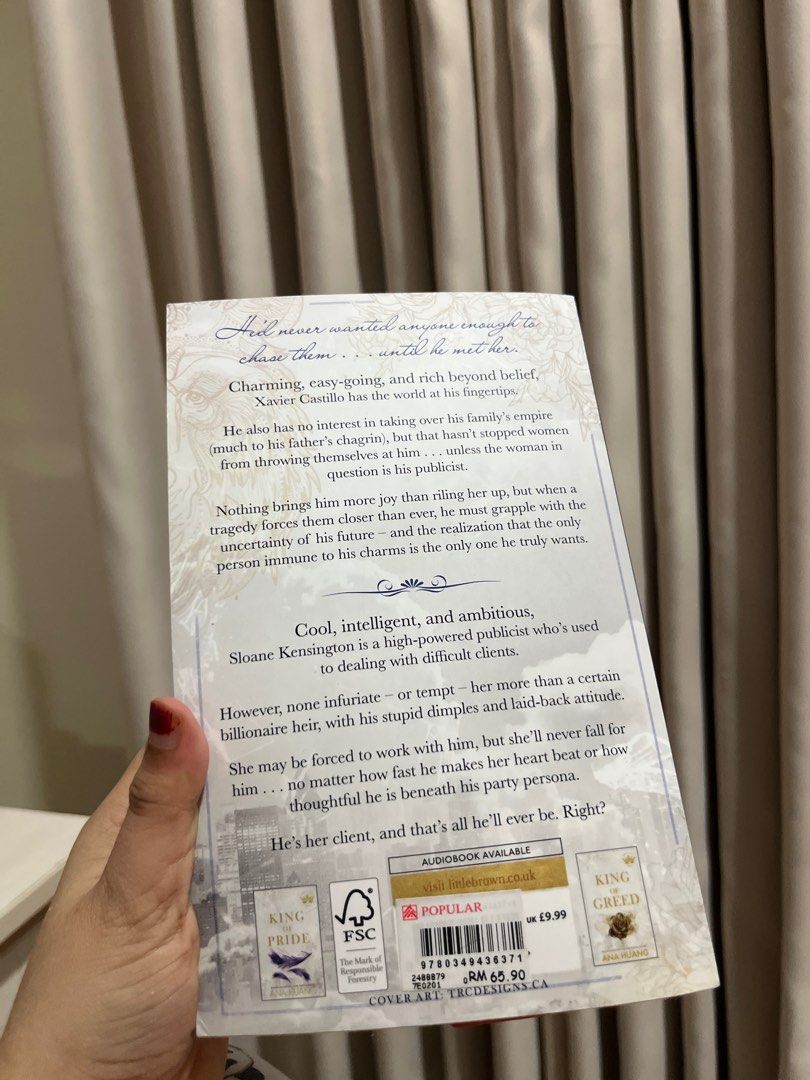 He'd never wanted anyone enough to
chase them . . . until he met her.
Charming, easy-going, and rich beyond belief,
Xavier Castillo has the world at his fingertips.
He also has no interest in taking over his family's empire
(much to his father's chagrin), but that hasn't stopped women
from throwing themselves at him . . . unless the woman in
question is his publicist.
Nothing brings him more joy than riling her up, but when a
tragedy forces them closer than ever, he must grapple with the
uncertainty of his future – and the realization that the only
person immune to his charms is the only one he truly wants.
Cool, intelligent, and ambitious,
Sloane Kensington is a high-powered publicist who's used
to dealing with difficult clients.
However, none infuriate – or tempt – her more than a certain
billionaire heir, with his stupid dimples and laid-back attitude.
She may be forced to work with him, but she'll never fall for
him . . . no matter how fast he makes her heart beat or how
thoughtful he is beneath his party persona.
He's her client, and that's all he'll ever be. Right?
AUDIOBOOK AVAILABLE
visit littlebrown.co.uk
KING
OF
PRIDE
ANA HUANG
FSC
The Mark of
Responsible
Forestry
POPULAR
UK £9.99
9780349436371
2488879
7E0201
RM 65.90
KING
OF
GREED
ANA HUANG
COVER ART: TRCDESIGNS.CA